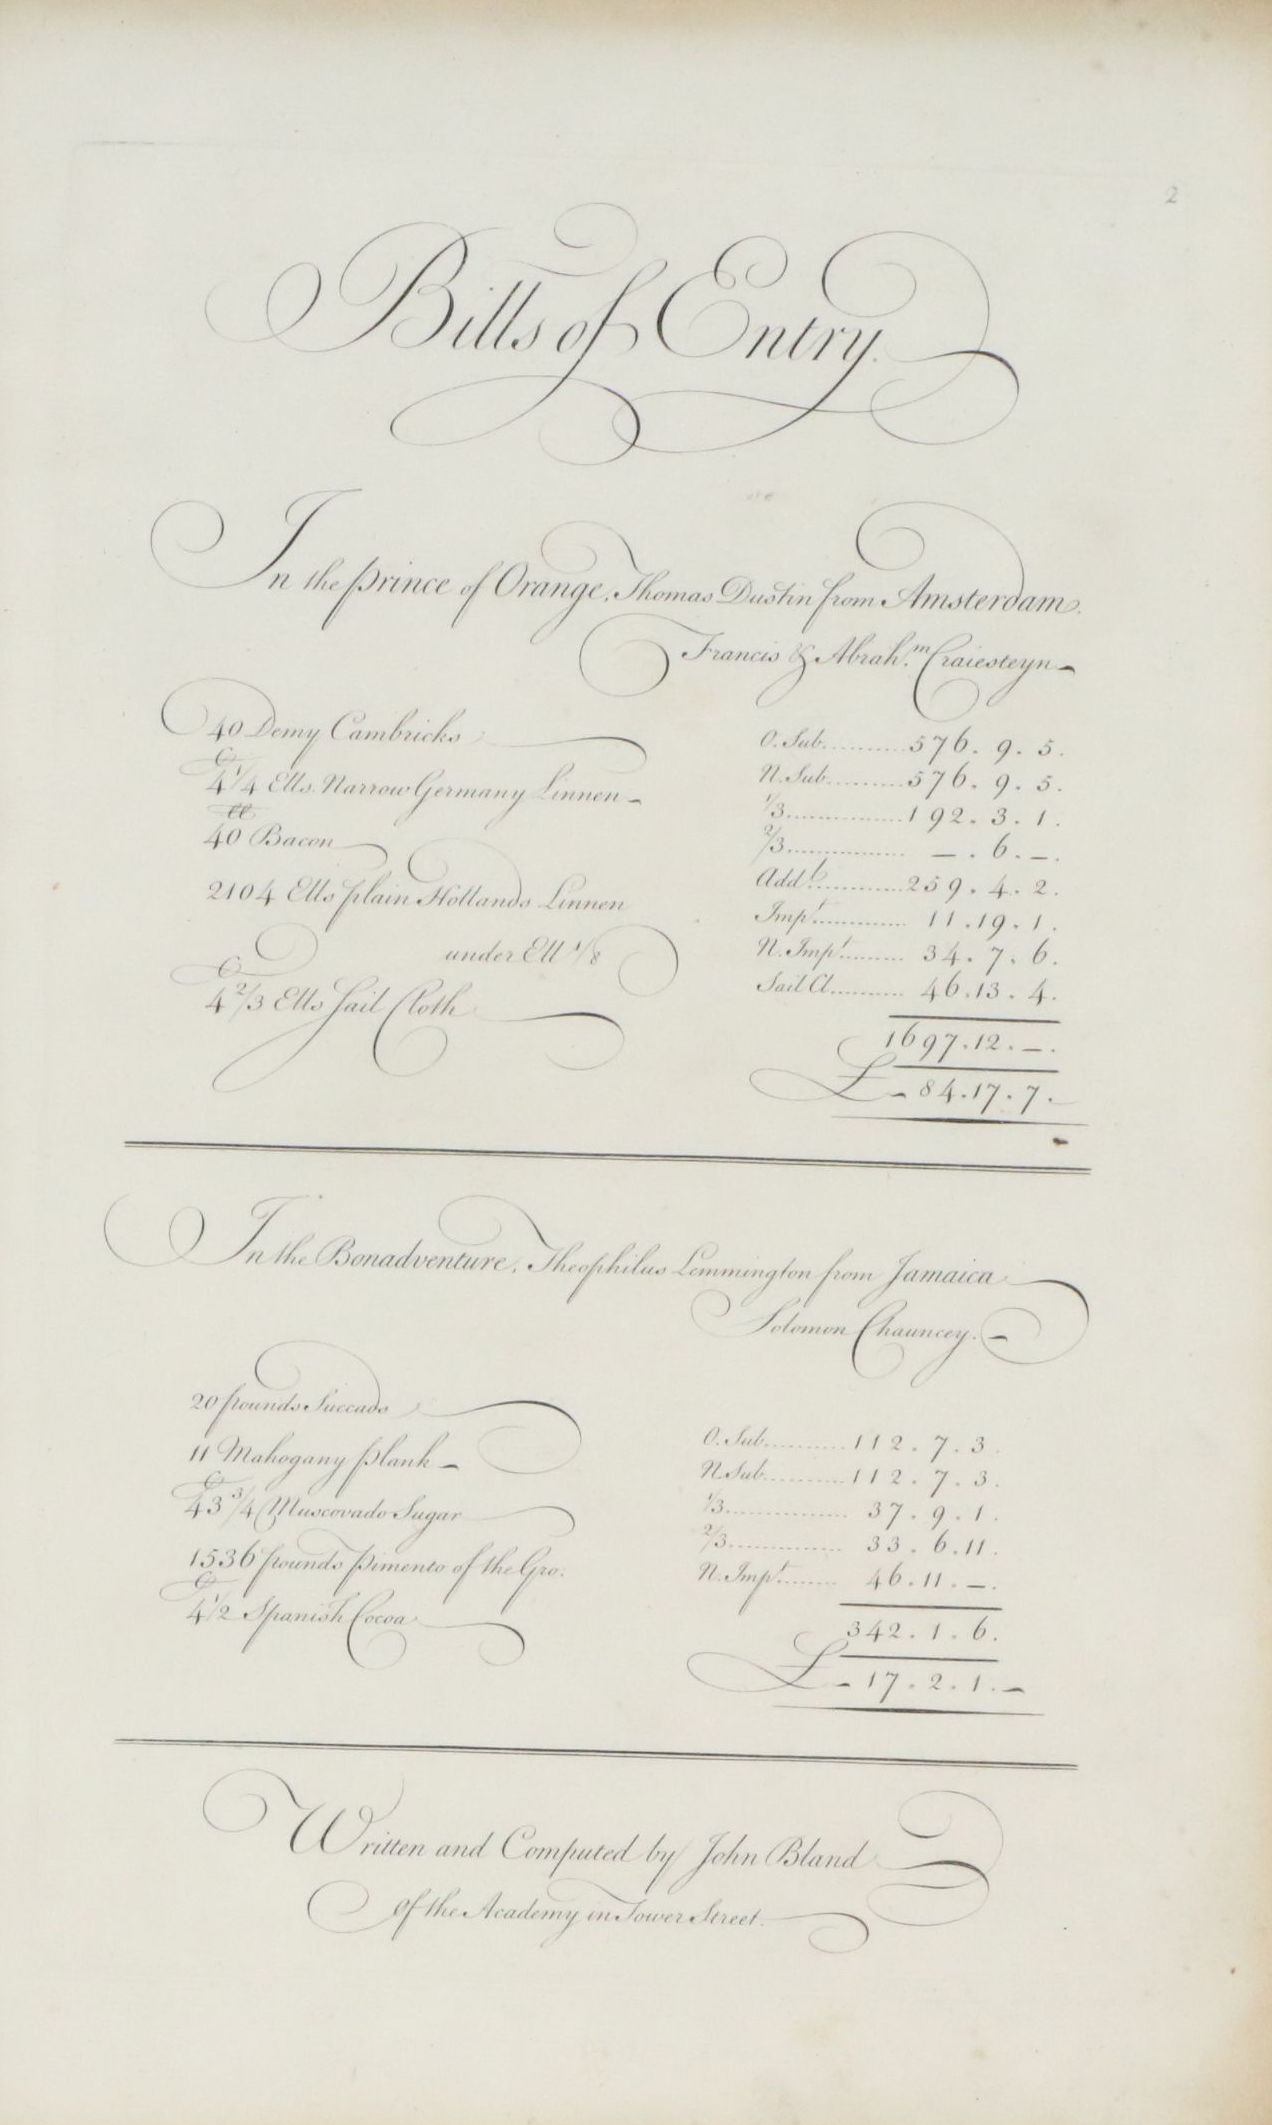 2
Bills of Entry.
In the Prince of Orange, Thomas Dustin from Amsterdam.
Francis & Abrah.m Craiesteyn
40 Demy Cambricks
C
4 1/4 Ells Narrow Germany Linnen
40 Bacon
2104 Ells plain Hollands Linnen
under Ell 1/8
C
4 2/3 Ells Sail Cloth
O. Sub. 576. 9. 5.
N. Sub. 576. 9. 5.
1/3 192. 3. 1.
2/3 —. 6. —.
Add.l 259. 4. 2.
Imp.t 11. 19. 1.
N. Imp.t 34. 7. 6.
Sail Cl. 46. 13. 4.
1697. 12. —.
£ 84. 17. 7.
In the Bonadventure, Theophilus Lemmington from Jamaica
Solomon Chauncey.
20 pounds Succads
11 Mahogany plank
C
43 3/4 Muscovado Sugar
1536 pounds Pimento of the Gro.
C
4 1/2 Spanish Cocoa
O. Sub. 112. 7. 3.
N. Sub. 112. 7. 3.
1/3 37. 9. 1.
2/3 33. 6. 11.
N. Imp.t 46. 11. —.
342. 1. 6.
£ 17. 2. 1.
Written and Computed by John Bland
Of the Academy in Tower Street.